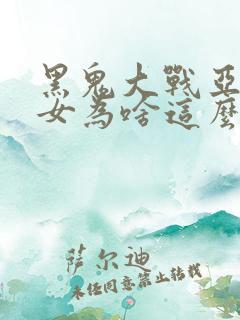 黑鬼大戰亞
女為啥這麼
萨尔迪
未经同意禁止转载